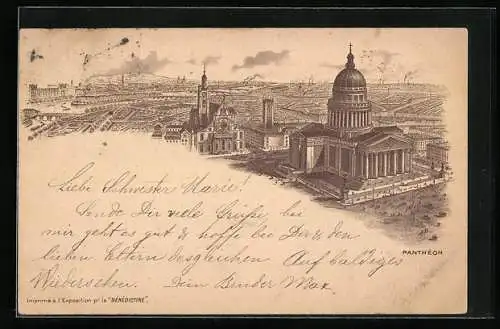 Liebe Schwester Marie!
Sende Dir viele Grüße, bei
mir geht es gut & hoffe bei Dir & den
lieben Eltern desgleichen Auf baldiges
Wiedersehen. Dein Bruder Max.
PANTHÉON
Imprimé à l'Exposition pr la "BÉNÉDICTINE".